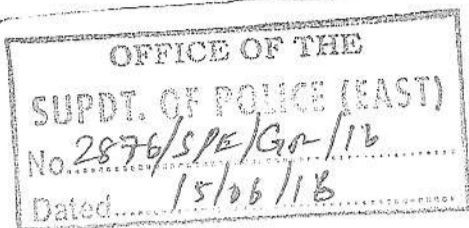 OFFICE OF THE
SUPDT. OF POLICE (EAST)
No. 2876/SPE/Gr/16
Dated 15/06/18